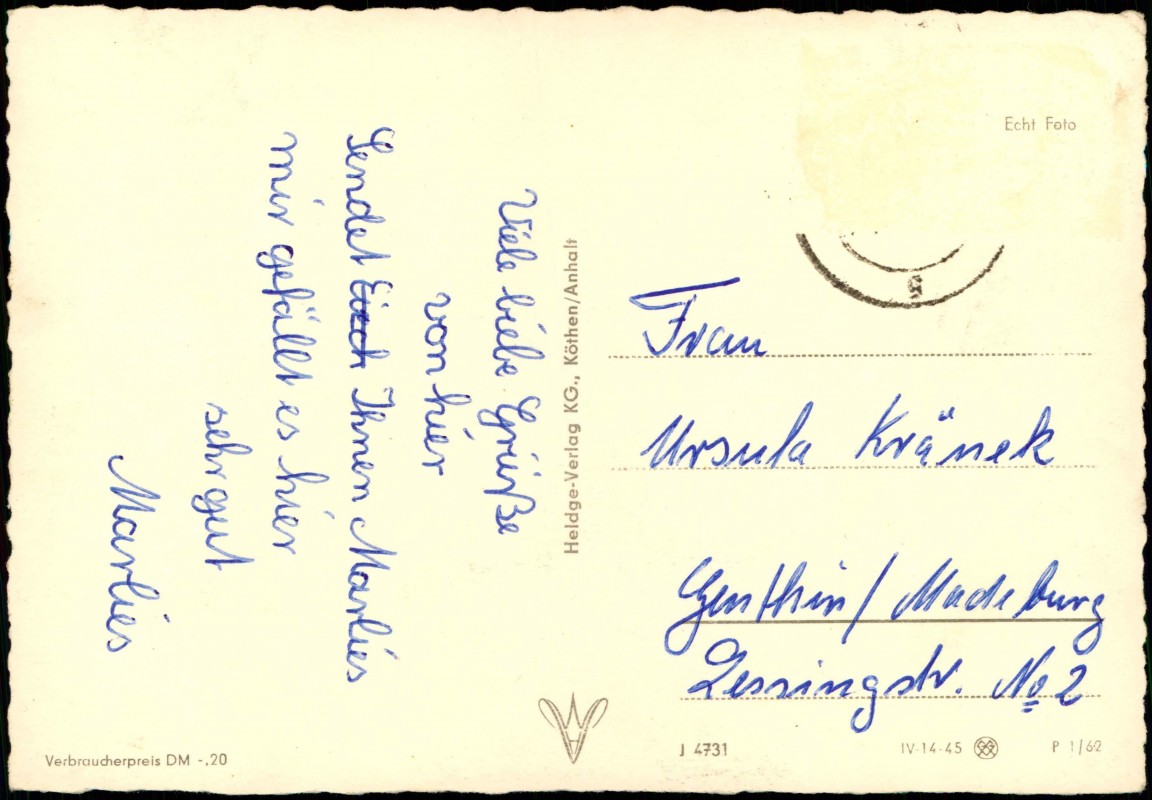 Viele liebe Grüße
von hier
Sendet Euch Ihnen Marlies
mir gefällt es hier
sehr gut
Marlies
Verbraucherpreis DM -.20
Heldge-Verlag KG., Köthen/Anhalt
Echt Foto
Frau
Ursula Kränek
Genthin/Madeburg
Lessingstr. No 2
J 4731
IV-14-45
P 1/62